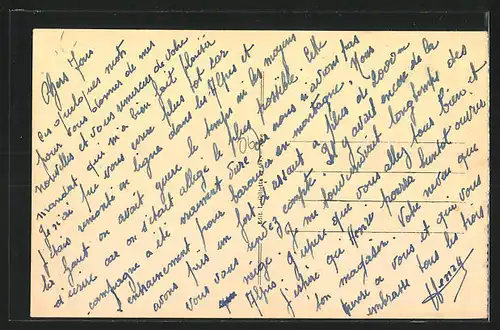 Chers Tous
Ces quelques mots
pour vous donner de mes
nouvelles et vous remercier de votre
mandat qui m'a bien fait plaisir
Je n'ai pu vous écrire plus tôt car
j'étais remonté en ligne dans les Alpes et
là haut on avait guère le temps ni les moyens
d'écrire car on s'était allégé le plus possible. Cette
campagne a été vraiment dure car nous n'avions pas
entrainement pour bataille en montagne. Nous
avons pris un fort d'assaut à plus de 2000m
vous vous rendez compte. Il y avait encore de la
neige. Je me souviendrai longtemps des
Alpes. J'espère que vous allez tous bien et
j'espère que Henri pourra bientôt ouvrir
son magasin. Votre neveu qui
pense à vous et qui vous
embrasse tous les trois
Henry